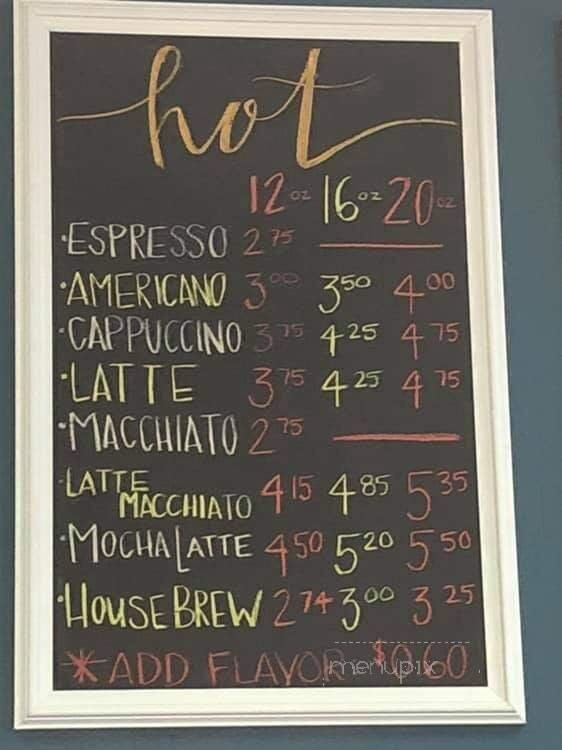 hot
12 oz 16 oz 20 oz
·ESPRESSO 2 75
·AMERICANO 3 00 3 50 4 00
·CAPPUCCINO 3 75 4 25 4 75
·LATTE 3 75 4 25 4 75
·MACCHIATO 2 75
·LATTE MACCHIATO 4 15 4 85 5 35
·MOCHA LATTE 4 50 5 20 5 50
·HOUSE BREW 2 74 3 00 3 25
*ADD FLAVOR $0.60
menupix